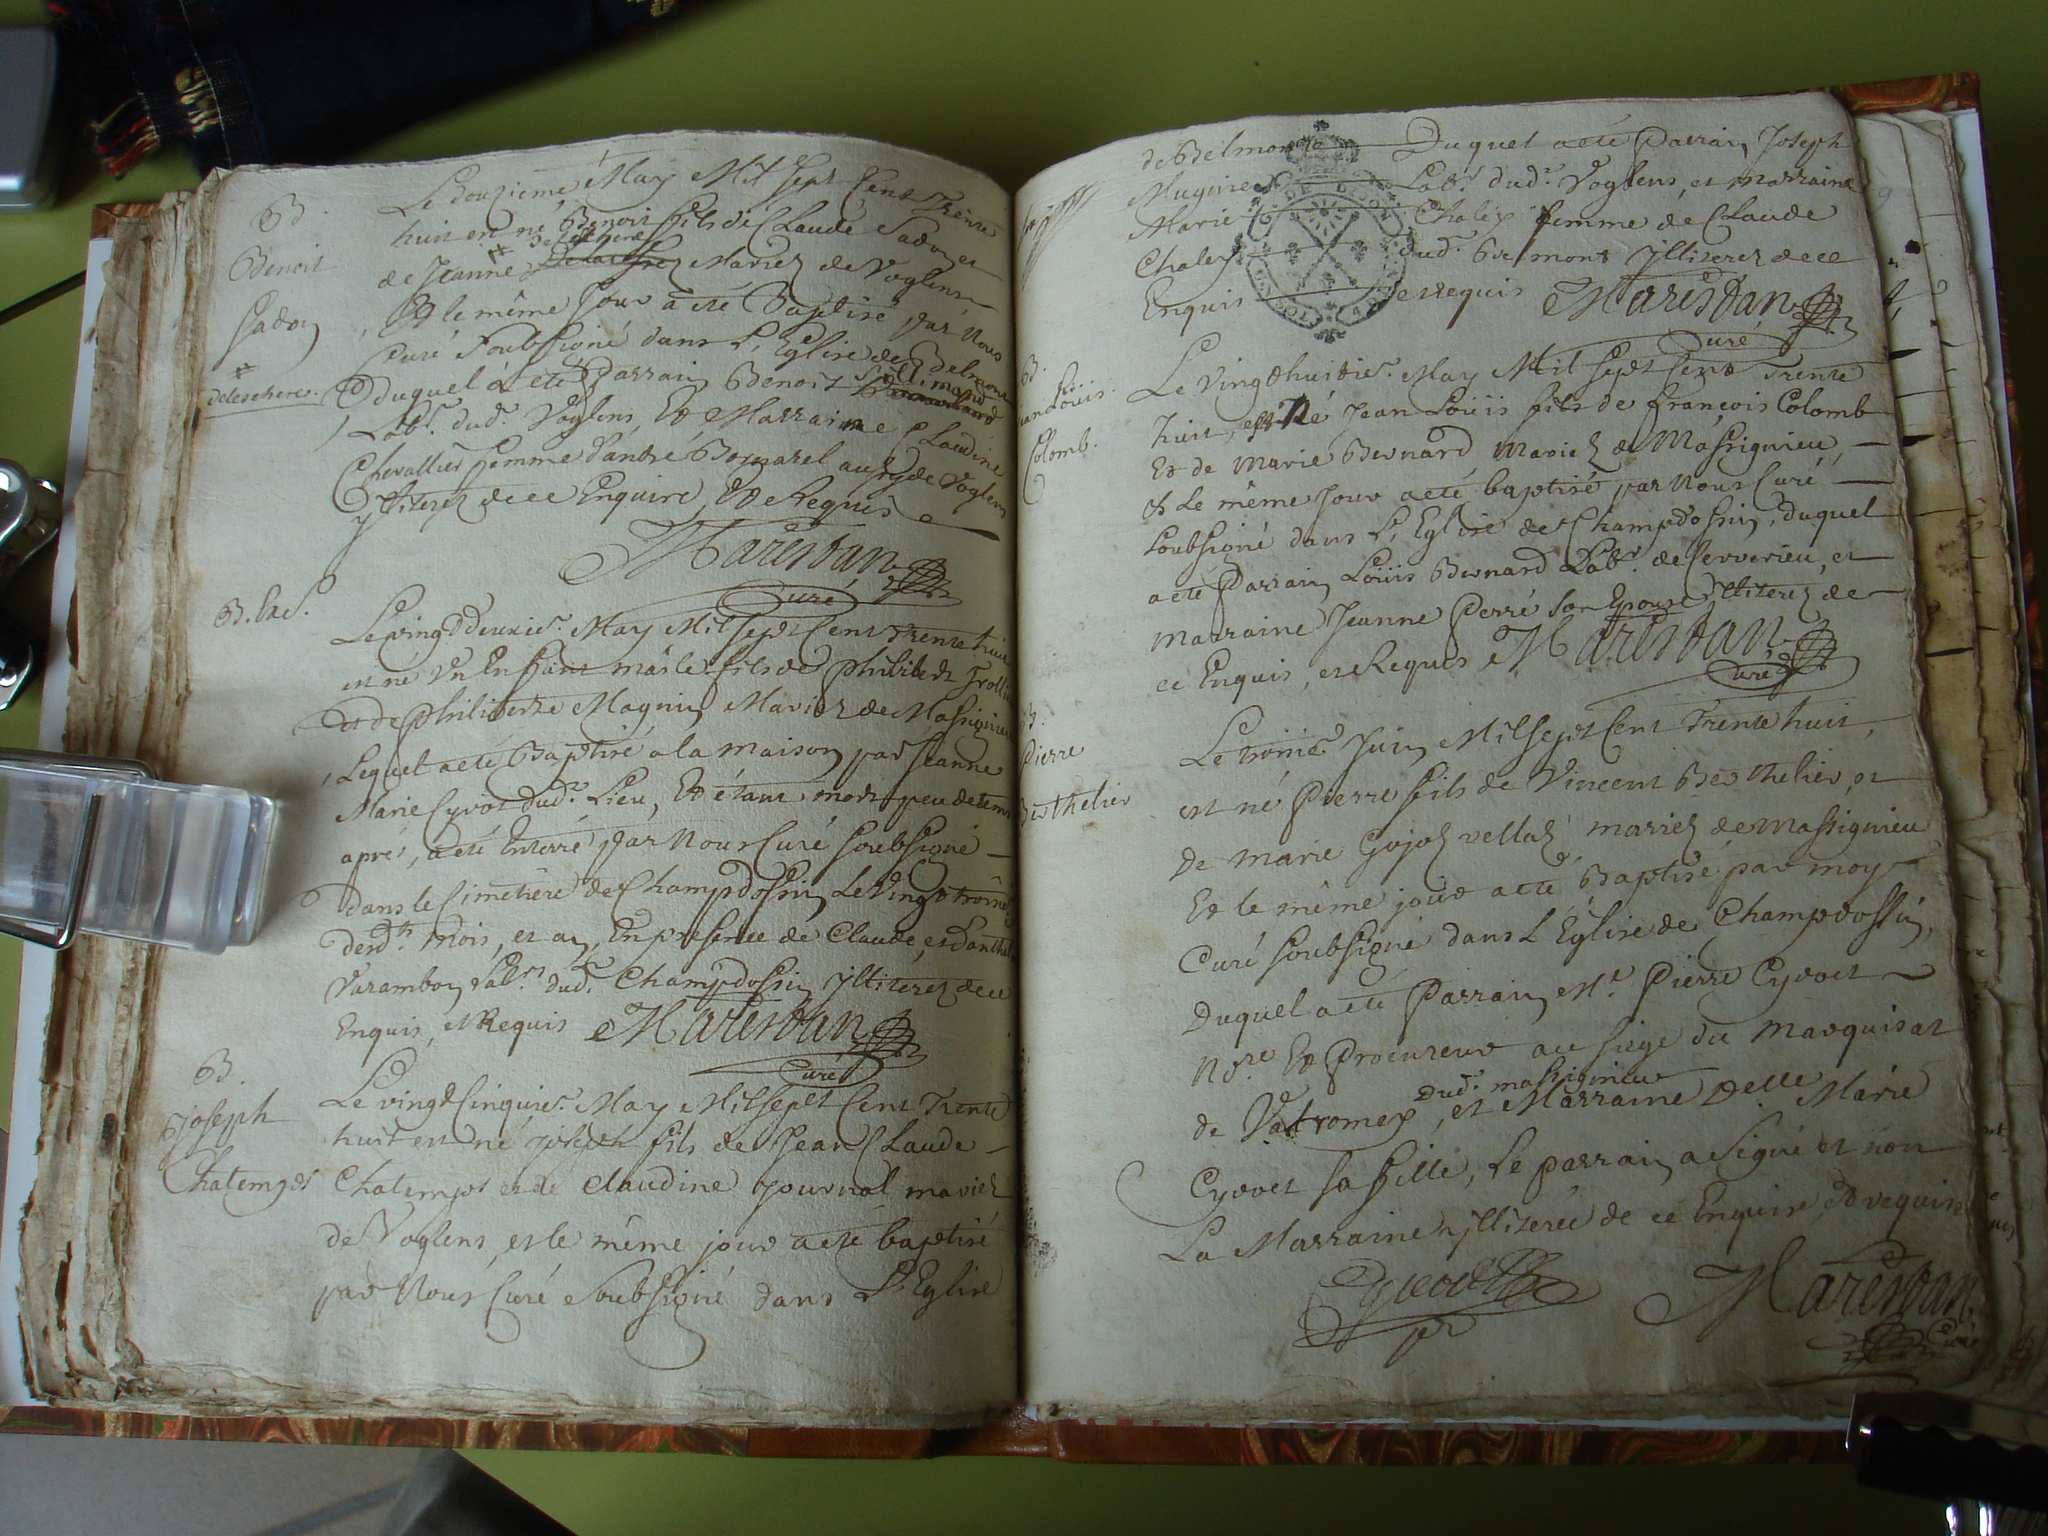 B.
Benoit
Jadon
delechere.
Le Douzieme May Mil Sept Cent Trente
huit est né Benoit fils de Claude Jadon et
de Jeanne Delechere Mariez de Voglens
Et le même Jour a été Baptisé par Nous
Curé Soubsigné dans L'Eglise de Belmont
Duquel a été Parrain Benoit
Labr. dudt. Voglens, Et Marraine Claudine
Chevallier femme d'antré Bornarel aussy de Voglens
ylliterez de ce Enquire Et de Requis
Marestan
Curé
B. bac.
Le vingtdeuxie. May Mil Sept Cent Trente huit
est né Un Enfant mâsle fils de Philibert Trollie
et de Philiberte Magnin Mariez de Massignieu
Lequel a été Baptisé a la maison par Jeanne
Marie Cyvot dudt. Lieu, Et étant mort peu de tems
aprés, a été Enterré par Nous Curé soubsigné
dans le Cimetière de Champdossin Le Vingt troisie
desdts. mois, et an, En présence de Claude, et Danthel
Varambon Labrs. dudt. Champdossin Illiterez de ce
Enquis, et Requis Marestan
Curé
B.
Joseph
Chatempt
Le vingt Cinquie. May Mil Sept Cent Trente
huit est né joseph fils de Jean Claude
Chatempt et de Claudine Journal mariez
de Voglens et le même jour a été baptisé
par Nous Curé Soubsigné dans L'Eglise
de Belmont Duquel a été Parrain Joseph
Mugnier Labr. dudt. Voglens, et Marraine
Marie Chaley femme de Claude
Chaley dudt. Belmont Illiterez de ce
Enquis et requis Marestan
Curé
B.
Jean Loüis
Colomb.
Le Vingthuitie. May Mil Sept Cent Trente
huit, est Né Jean Loüis fils de françois Colomb
Et de Marie Bernard Mariez de Massignieu,
et Le même Jour a été baptisé par Nous Curé
soubsigné dans L'Eglise de Champdossin, duquel
a été Parrain Loüis Bernard Labr. de Cerverieu, et
marraine Jeanne Perré son Epouse Illiterez de
ce Enquis, et Requis Marestan
Curé
B.
Pierre
Berthelier
Le troisie. Juin Mil Sept Cent Trente huit,
est né Pierre fils de Vincent Berthelier, et
de marie Gojoz vellaz mariez de Massignieu
Et le même jour a été Baptisé par moy
Curé soubsigné dans L'Eglise de Champdossin,
Duquel a été Parrain Mr. Pierre Cyvoct
Nore. Et Procureur au siege du Marquisat
dudt. massignieu
de Valromey, et Marraine Delle Marie
Cyvoct sa fille, Le parrain a signé et non
La Marraine yllitereé de ce Enquise, et requise
Cyvoct
Marestan
Curé